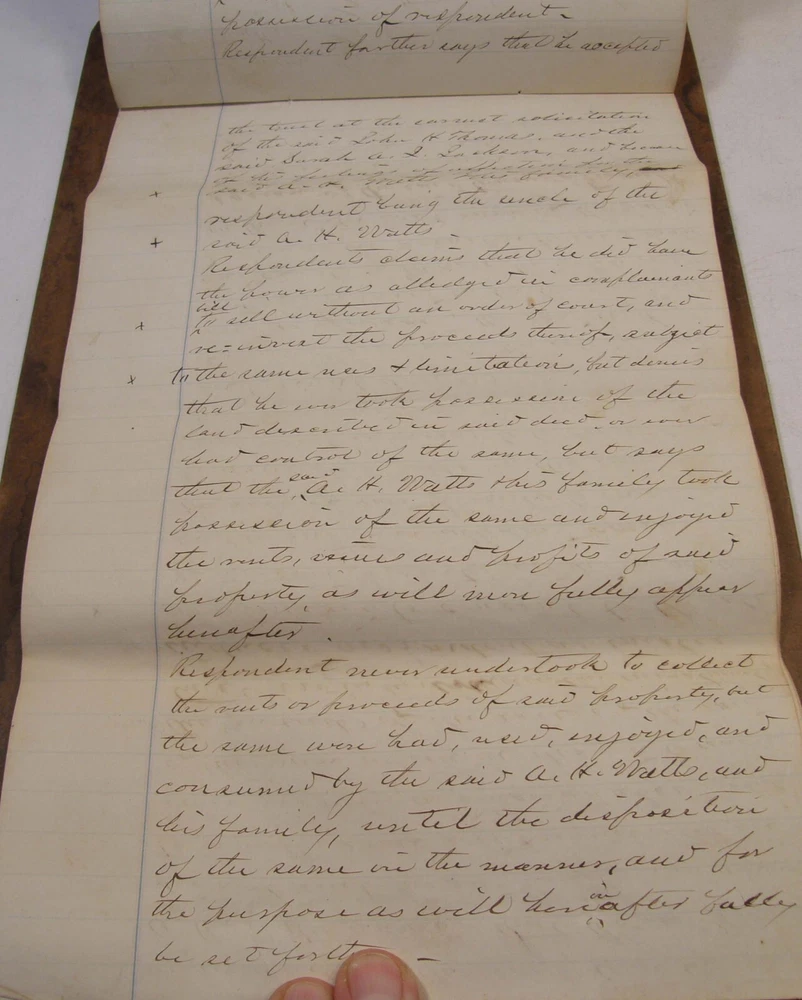 possession of respondent.
Respondent further says that he accepted
the trust at the earnest solicitation
of the said John H Thomas, and the
said Sarah A. I. Jackson, and because
of his feelings of affection for the
said A. H. Watts & his family,
respondent being the uncle of the
said A. H. Watts.
Respondents claims that he did have
the power as alledged in complainants
bill
to sell without an order of court, and
re=invest the proceeds thereof, subject
to the same uses & limitation, but denies
that he ever took possession of the
land described in said deed, or ever
had control of the same, but says
that the said A. H. Watts & his family took
possession of the same and enjoyed
the rents, issues and profits of said
property, as will more fully appear
hereafter.
Respondent never undertook to collect
the rents or proceeds of said property, but
the same were had, used, enjoyed, and
consumed by the said A. H. Watts, and
his family, until the disposition
of the same in the manner, and for
the purpose as will hereinafter fully
be set forth. —